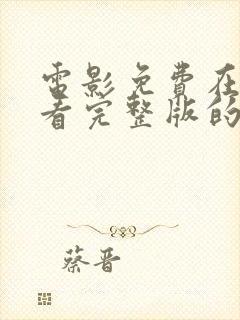 電影免費在
看完整版的
蔡晋